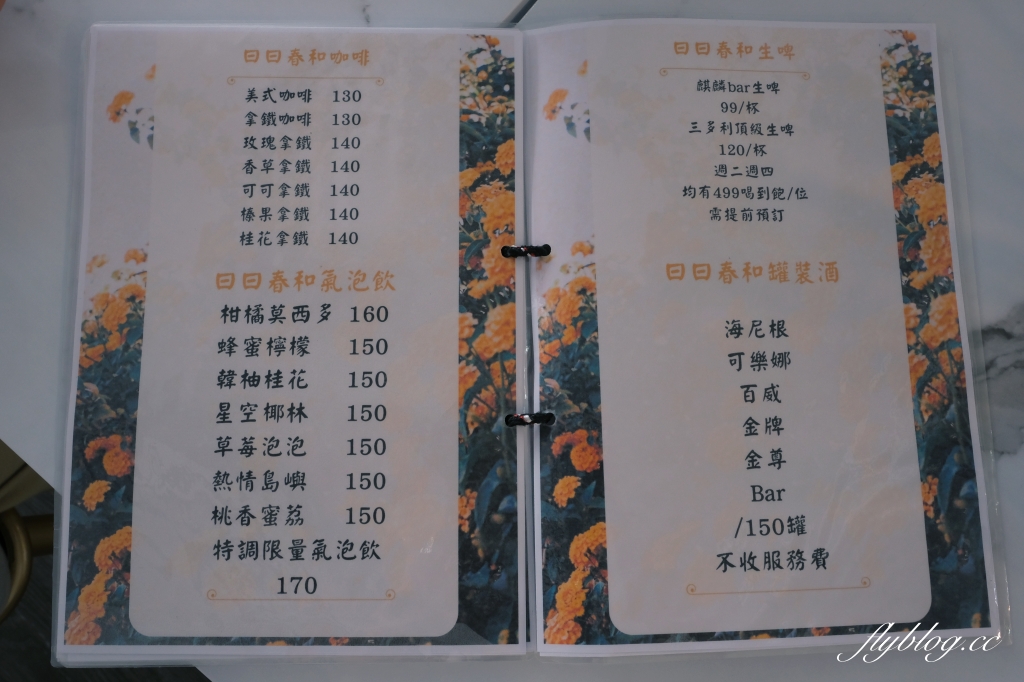 日日春和咖啡
美式咖啡 130
拿鐵咖啡 130
玫瑰拿鐵 140
香草拿鐵 140
可可拿鐵 140
榛果拿鐵 140
桂花拿鐵 140
日日春和氣泡飲
柑橘莫西多 160
蜂蜜檸檬 150
韓柚桂花 150
星空椰林 150
草莓泡泡 150
熱情島嶼 150
桃香蜜荔 150
特調限量氣泡飲
170
日日春和生啤
麒麟bar生啤
99/杯
三多利頂級生啤
120/杯
週二週四
均有499喝到飽/位
需提前預訂
日日春和罐裝酒
海尼根
可樂娜
百威
金牌
金尊
Bar
/150罐
不收服務費
flyblog.cc